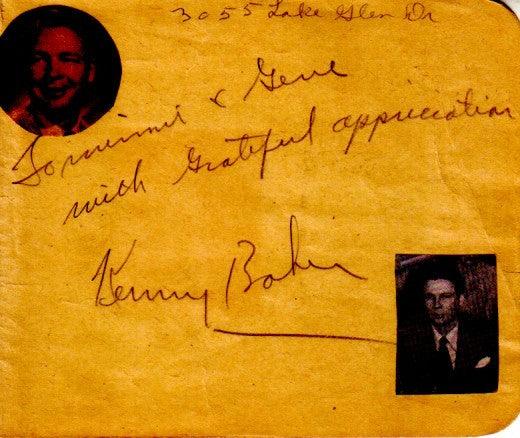 3055 Lake Glen Dr
To Minnie & Gene
with grateful appreciation
Kenny Baker